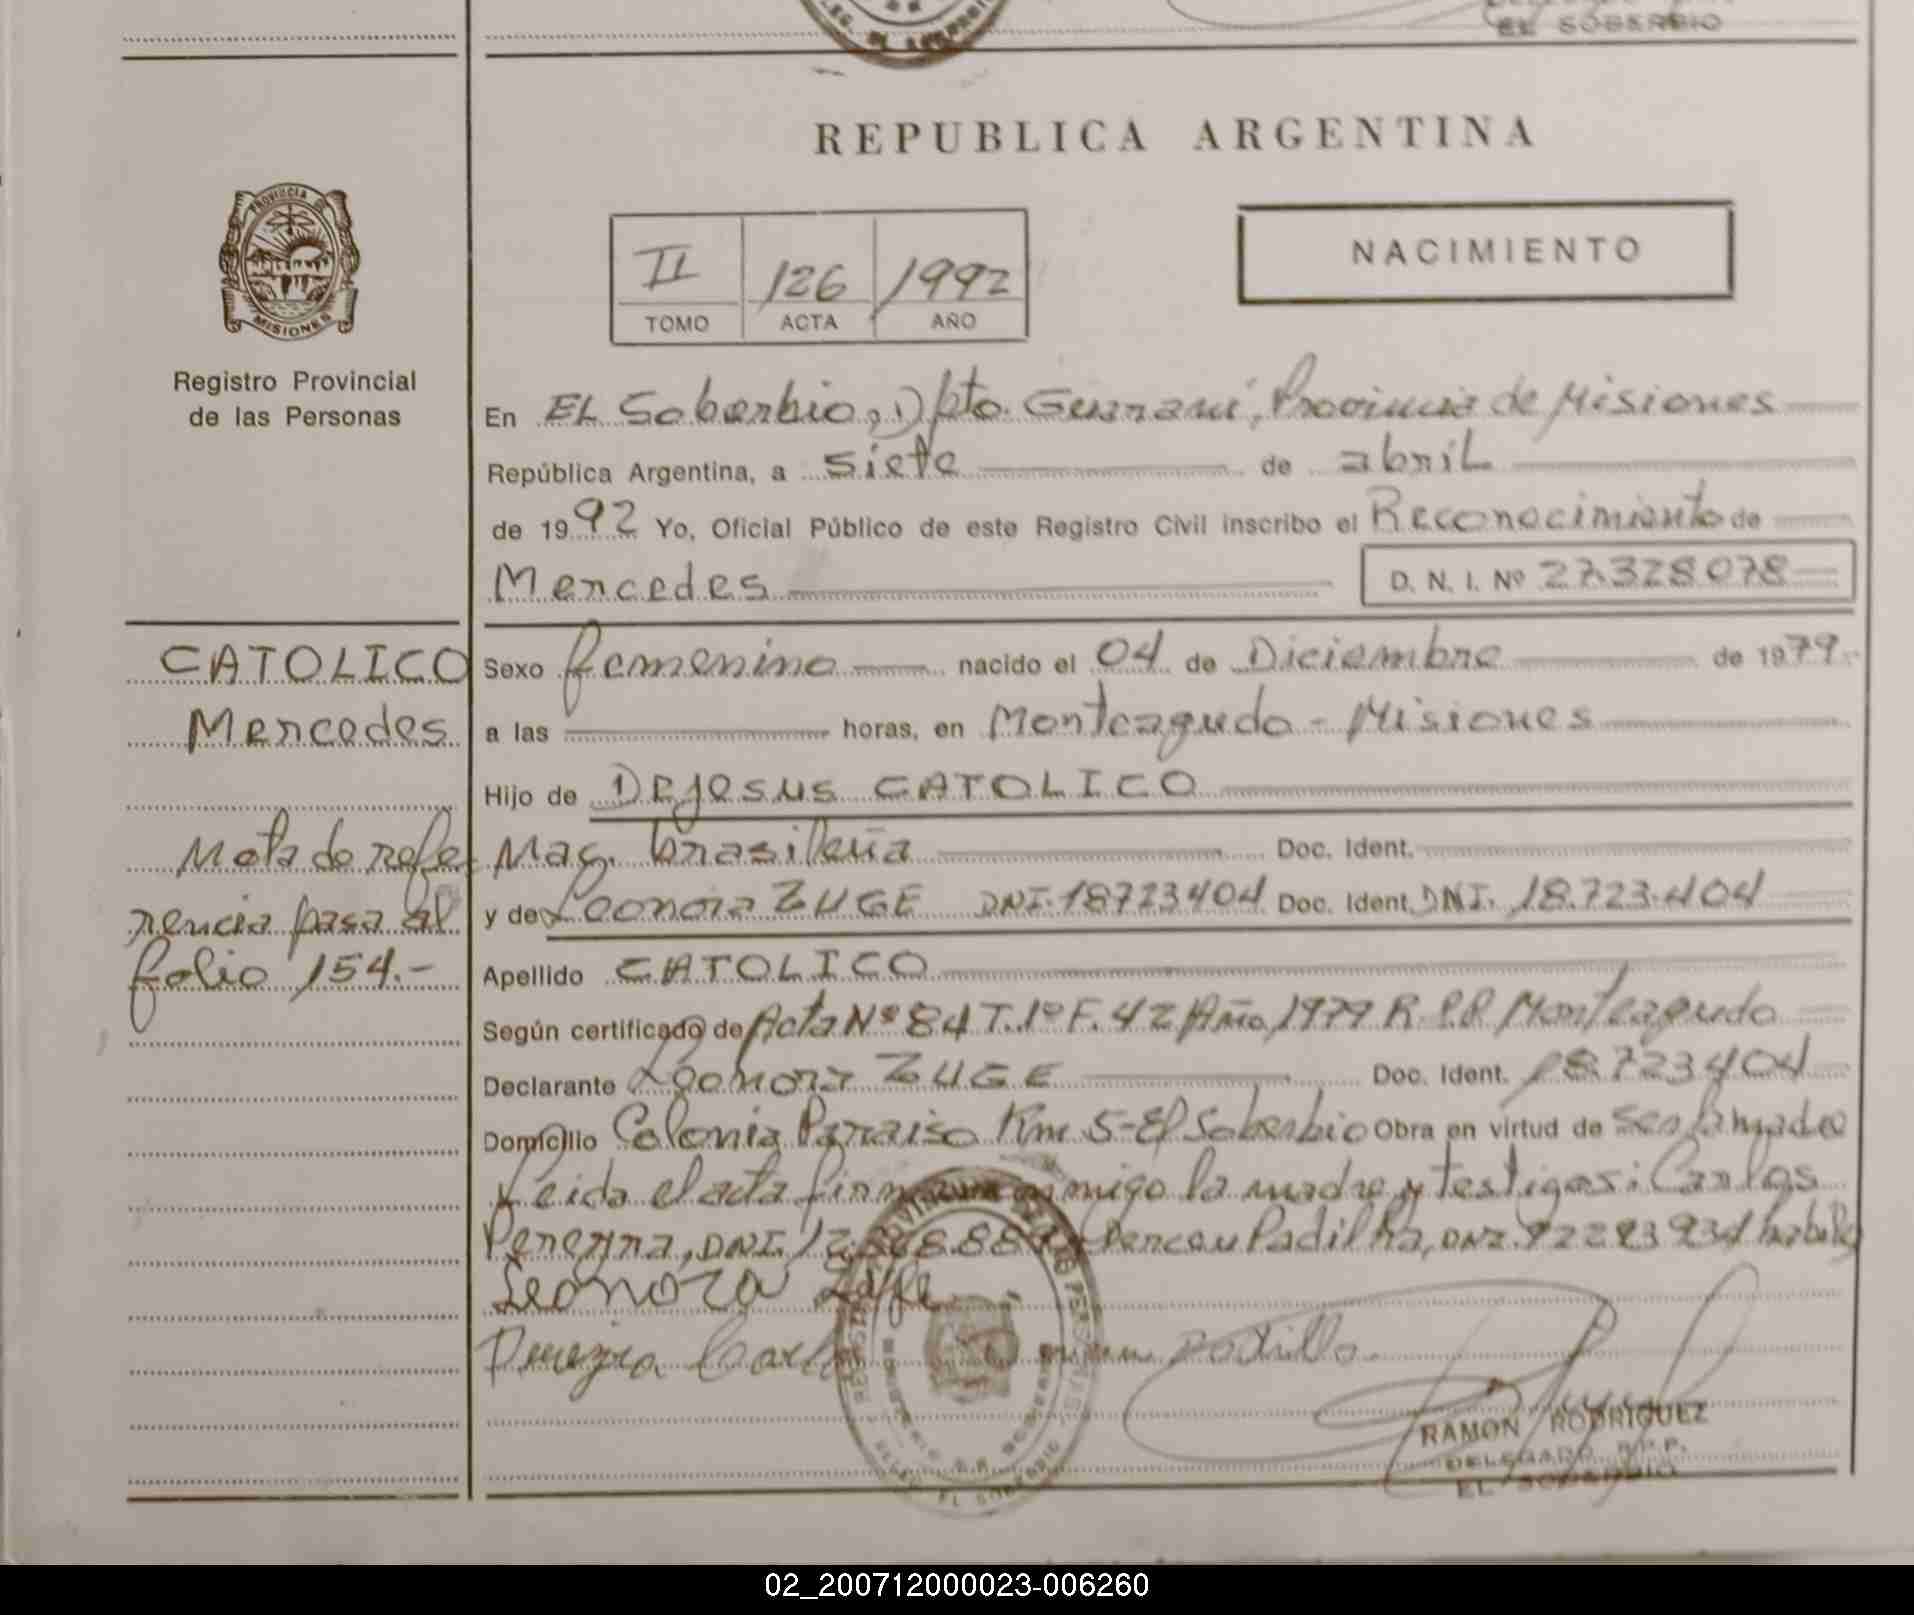 EL SOBERBIO
REPUBLICA ARGENTINA
NACIMIENTO
II 126 1992
TOMO ACTA AÑO
PROVINCIA DE
MISIONES
Registro Provincial
de las Personas
En EL Soberbio, Dpto. Guarani, Provincia de Misiones
República Argentina, a siete de abril
de 1992 Yo, Oficial Público de este Registro Civil inscribo el Reconocimiento de
Mercedes D. N. I. Nº 27.328078
CATOLICO
Mercedes
Nota de refe
rencia pasa al
folio 154.-
Sexo femenino nacido el 04 de Diciembre de 1979.-
a las horas, en Monteagudo - Misiones
Hijo de DeJesus CATOLICO
Nac. brasileña Doc. Ident.
y de Leonora ZUGE DNI. 18723404 Doc. Ident. DNI. 18.723.404
Apellido CATOLICO
Según certificado de Acta Nº 84 T. 1º F. 42 Año 1979 R.P.P. Monteagudo
Declarante Leonora ZUGE Doc. Ident. 18723404
Domicilio Colonia Paraiso Km 5 - El Soberbio Obra en virtud de ser la madre
Leida el acta firman conmigo la madre y testigos: Carlos
Pereyra, DNI. Padilha, DNI.
Leonora
Carlos Padillo
RAMON RODRIGUEZ
DELEGADO R.P.P.
EL SOBERBIO
02_200712000023-006260